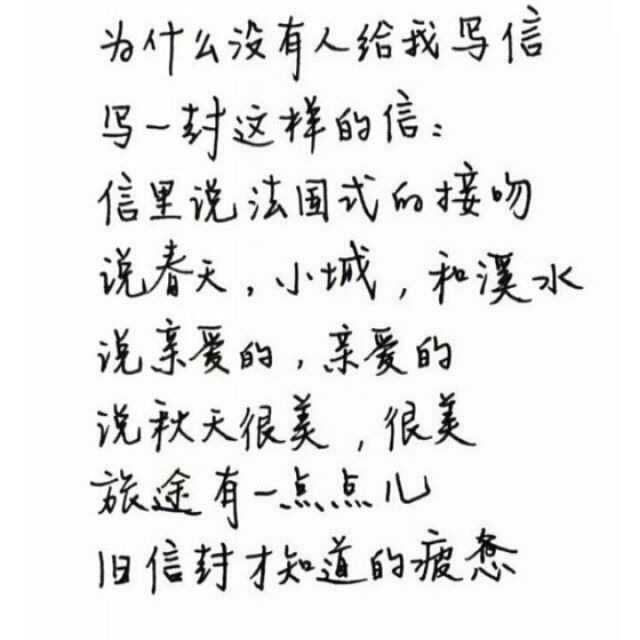 为什么没有人给我写信
写一封这样的信:
信里说法国式的接吻
说春天,小城,和溪水
说亲爱的,亲爱的
说秋天很美,很美
旅途有一点点儿
旧信封才知道的疲惫